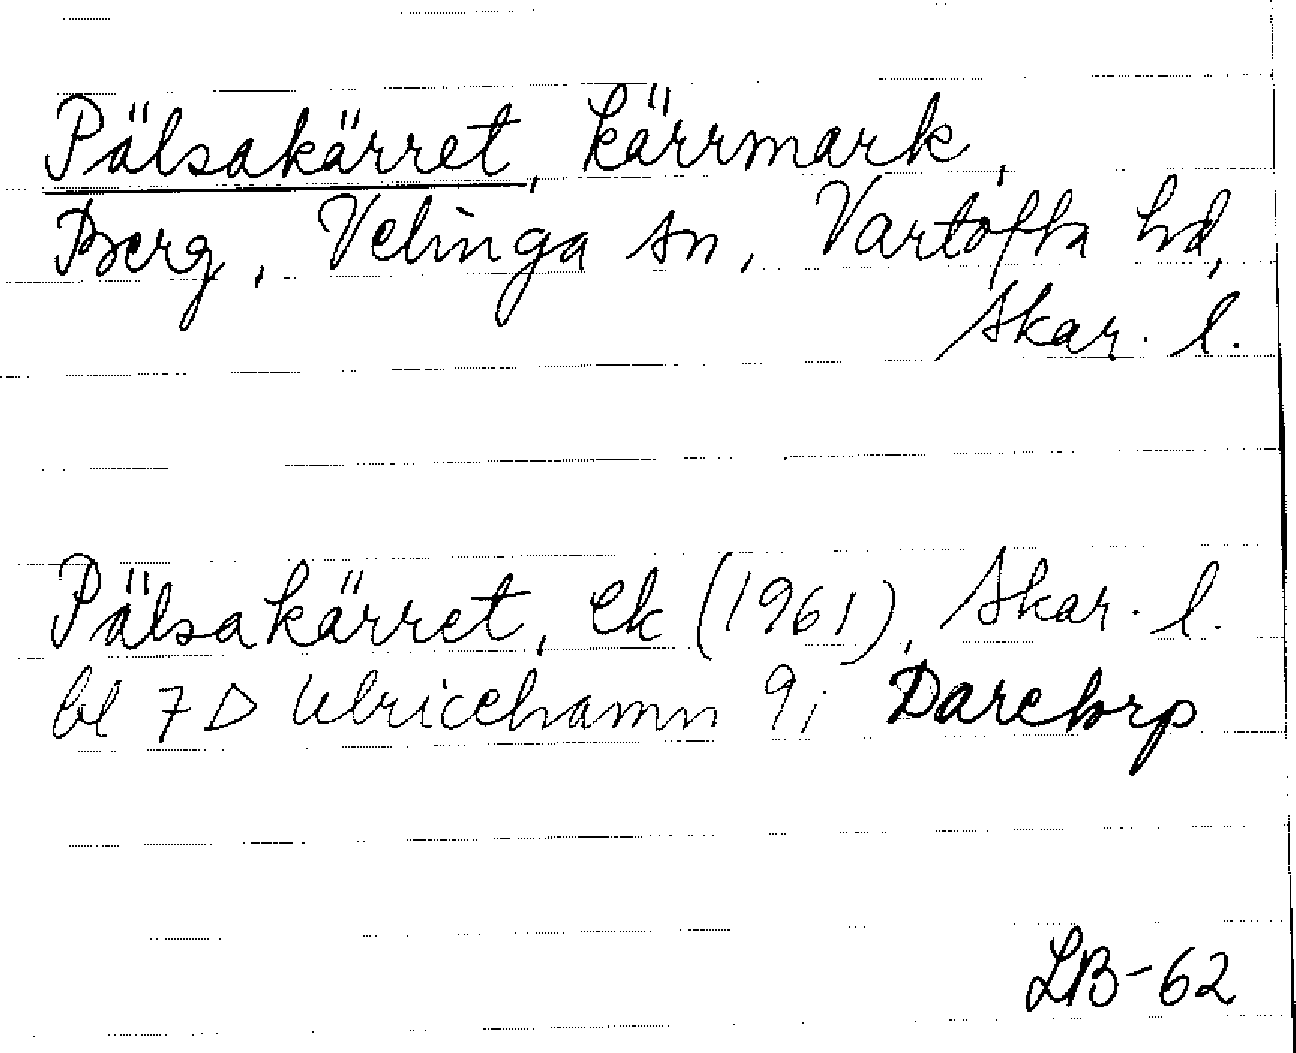 Pälsakärret, kärrmark,
Berg, Velinga sn, Vartofta hd,
Skar. l.
Pälsakärret, ek (1961), Skar. l.
bl 7 D Ulricehamn 9i Daretorp
LB-62